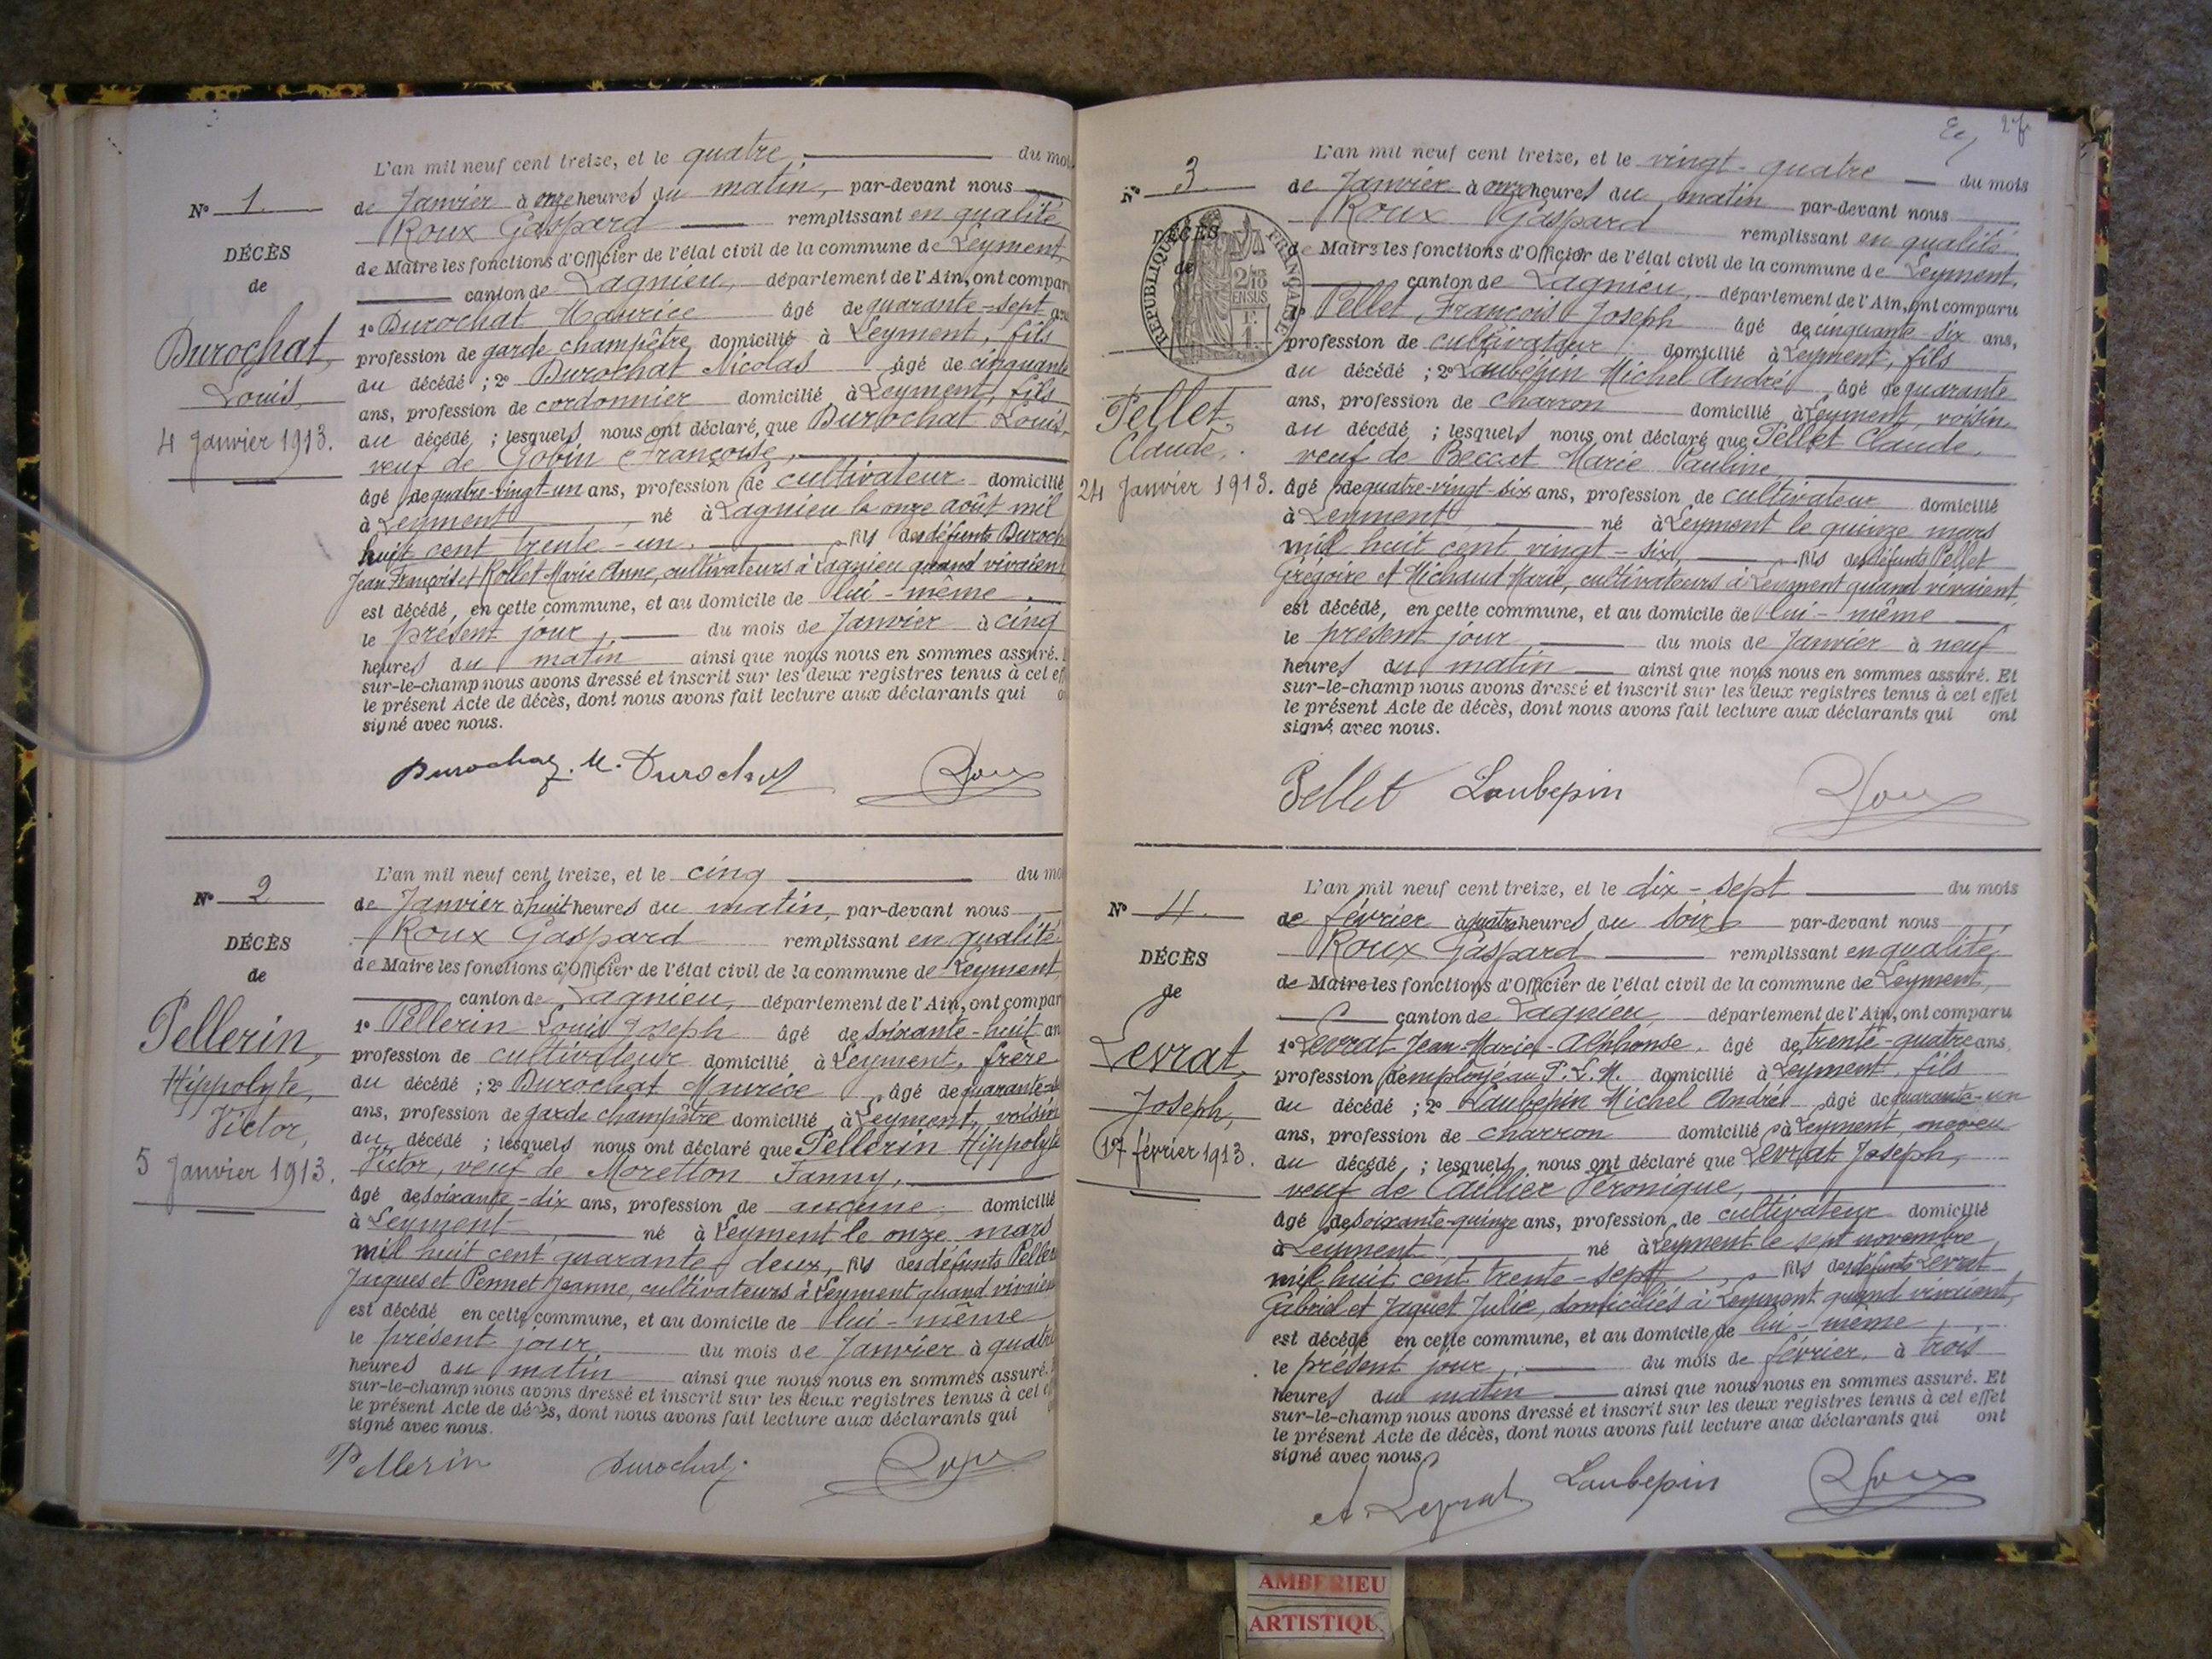 L'an mil neuf cent treize, et le quatre, du moi
N° 1. de Janvier à onze heures du matin, par-devant nous
Roux Gaspard remplissant en qualité
DÉCÈS
de
de Maire les fonctions d'Officier de l'état civil de la commune de Leyment,
canton de Lagnieu, département de l'Ain, ont compar
1° Durochat Maurice âgé de quarante-sept an
Durochat,
Louis
4 Janvier 1913.
profession de garde champêtre domicilié à Leyment, fils
du décédé ; 2° Durochat Nicolas âgé de cinquante
ans, profession de cordonnier domicilié à Leyment, fils
du décédé ; lesquels nous ont déclaré, que Durochat Louis,
veuf de Gobin Françoise,
âgé de quatre-vingt-un ans, profession de cultivateur domicilié
à Leyment, né à Lagnieu le onze août mil
huit cent trente-un, fils des défunts Duroch
Jean François et Rollet Marie Anne, cultivateurs à Lagnieu quand vivaient
est décédé, en cette commune, et au domicile de lui-même
le présent jour, du mois de Janvier à cinq
heures du matin ainsi que nous nous en sommes assuré.
sur-le-champ nous avons dressé et inscrit sur les deux registres tenus à cet ef
le présent Acte de décès, dont nous avons fait lecture aux déclarants qui o
signé avec nous.
Durochat. M. Durochat Roux
L'an mil neuf cent treize, et le cinq du mo
N° 2 de Janvier à huit heures du matin, par-devant nous
Roux Gaspard remplissant en qualité
DÉCÈS
de
de Maire les fonctions d'Officier de l'état civil de la commune de Leyment
canton de Lagnieu, département de l'Ain, ont compar
Pellerin,
Hippolyte,
Victor,
5 Janvier 1913.
1° Pellerin Louis Joseph âgé de soixante-huit an
profession de cultivateur domicilié à Leyment, frère
du décédé ; 2° Durochat Maurice âgé de quarante-
ans, profession de garde champêtre domicilié à Leyment, voisin
du décédé ; lesquels nous ont déclaré que Pellerin Hippolyte
Victor, veuf de Moretton Fanny,
âgé de soixante-dix ans, profession de aucune domicilié
à Leyment né à Leyment le onze mars
mil huit cent quarante deux, fils des défunts Peller
Jacques et Pennet Jeanne, cultivateurs à Leyment quand vivaien
est décédé en cette commune, et au domicile de lui-même
le présent jour du mois de Janvier à quatre
heures du matin ainsi que nous nous en sommes assuré.
sur-le-champ nous avons dressé et inscrit sur les deux registres tenus à cet
le présent Acte de décès, dont nous avons fait lecture aux déclarants qui
signé avec nous.
Pellerin Durochat. Roux
L'an mil neuf cent treize, et le vingt-quatre du mois
N° 3 de Janvier à onze heures du matin par-devant nous
Roux Gaspard remplissant en qualité
DÉCÈS
de
RÉPUBLIQUE FRANÇAISE
2/10 EN SUS
de Maire les fonctions d'Officier de l'état civil de la commune de Leyment,
canton de Lagnieu, département de l'Ain, ont comparu
1° Pellet, François Joseph âgé de cinquante-six ans,
profession de cultivateur domicilié à Leyment, fils
du décédé ; 2° Laubépin Michel André âgé de quarante
ans, profession de charron domicilié à Leyment, voisin
Pellet,
Claude,
24 Janvier 1913.
du décédé ; lesquels nous ont déclaré que Pellet Claude,
veuf de Beccat Marie Pauline
âgé de quatre-vingt-six ans, profession de cultivateur domicilié
à Leyment, né à Leyment le quinze mars
mil huit cent vingt-six, fils des défunts Pellet
Grégoire et Michaud Marie, cultivateurs à Leyment quand vivaient,
est décédé, en cette commune, et au domicile de lui-même
le présent jour du mois de Janvier à neuf
heures du matin ainsi que nous nous en sommes assuré. Et
sur-le-champ nous avons dressé et inscrit sur les deux registres tenus à cet effet
le présent Acte de décès, dont nous avons fait lecture aux déclarants qui ont
signé avec nous.
Pellet Laubepin Roux
L'an mil neuf cent treize, et le dix-sept du mois
N° 4. de février à quatre heures du soir par-devant nous
Roux Gaspard remplissant en qualité
DÉCÈS
de
de Maire les fonctions d'Officier de l'état civil de la commune de Leyment,
canton de Lagnieu, département de l'Ain, ont comparu
Levrat,
Joseph,
17 février 1913.
1° Levrat Jean-Marie-Alphonse, âgé de trente-quatre ans,
profession d'employé au P. L. M. domicilié à Leyment, fils
du décédé ; 2° Laubepin Michel André âgé de quarante-un
ans, profession de charron domicilié à Leyment, neveu
du décédé ; lesquels nous ont déclaré que Levrat Joseph,
veuf de Caillier Véronique,
âgé de soixante-quinze ans, profession de cultivateur domicilié
à Leyment né à Leyment le sept novembre
mil huit cent trente-sept, fils des défunts Levrat
Gabriel et Jaquet Julie, domiciliés à Leyment quand vivaient,
est décédé en cette commune, et au domicile de lui-même,
le présent jour, du mois de février, à trois
heures du matin ainsi que nous nous en sommes assuré. Et
sur-le-champ nous avons dressé et inscrit sur les deux registres tenus à cet effet
le présent Acte de décès, dont nous avons fait lecture aux déclarants qui ont
signé avec nous
A. Levrat Laubepin Roux
AMBERIEU
ARTISTIQU